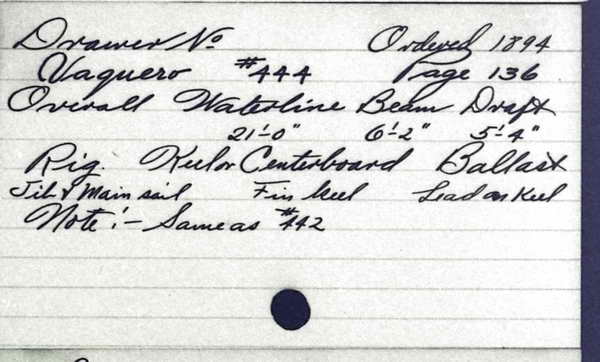 Drawer No Ordered 1894
Vaquero #444 Page 136
Overall Waterline Beam Draft
21'-0" 6'-2" 5'-4"
Rig. Keel or Centerboard Ballast
Jib & Main sail Fin keel Lead on Keel
Note:- Same as #442